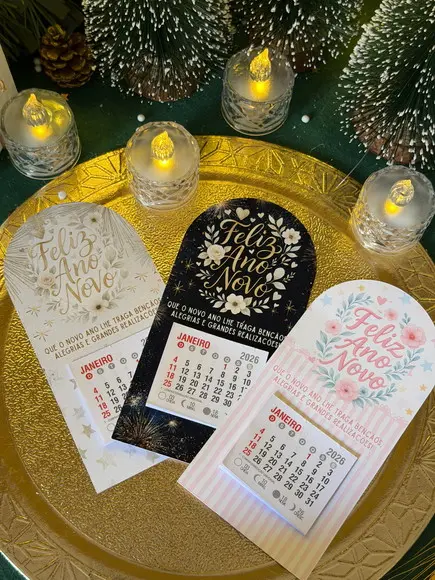 Feliz
Ano
Novo
QUE O NOVO ANO LHE TRAGA BENÇÃOS,
ALEGRIAS E GRANDES REALIZAÇÕES!
JANEIRO
4 5 6
11 12 13
18 19 20
25 26 27
Feliz
Ano
Novo
QUE O NOVO ANO LHE TRAGA BENÇÃOS,
ALEGRIAS E GRANDES REALIZAÇÕES!
JANEIRO 2026
1 2 3
4 5 6 7 8 9 10
11 12 13 14 15 16 17
18 19 20 21 22 23
25 26 27 28 29
Feliz
Ano
Novo
QUE O NOVO ANO LHE TRAGA BENÇÃOS,
ALEGRIAS E GRANDES REALIZAÇÕES!
JANEIRO 2026
1 2 3
4 5 6 7 8 9 10
11 12 13 14 15 16 17
18 19 20 21 22 23 24
25 26 27 28 29 30 31